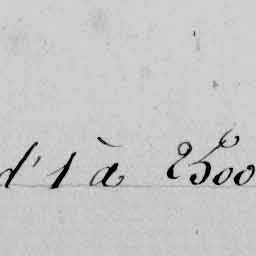 d' 1 à 2500